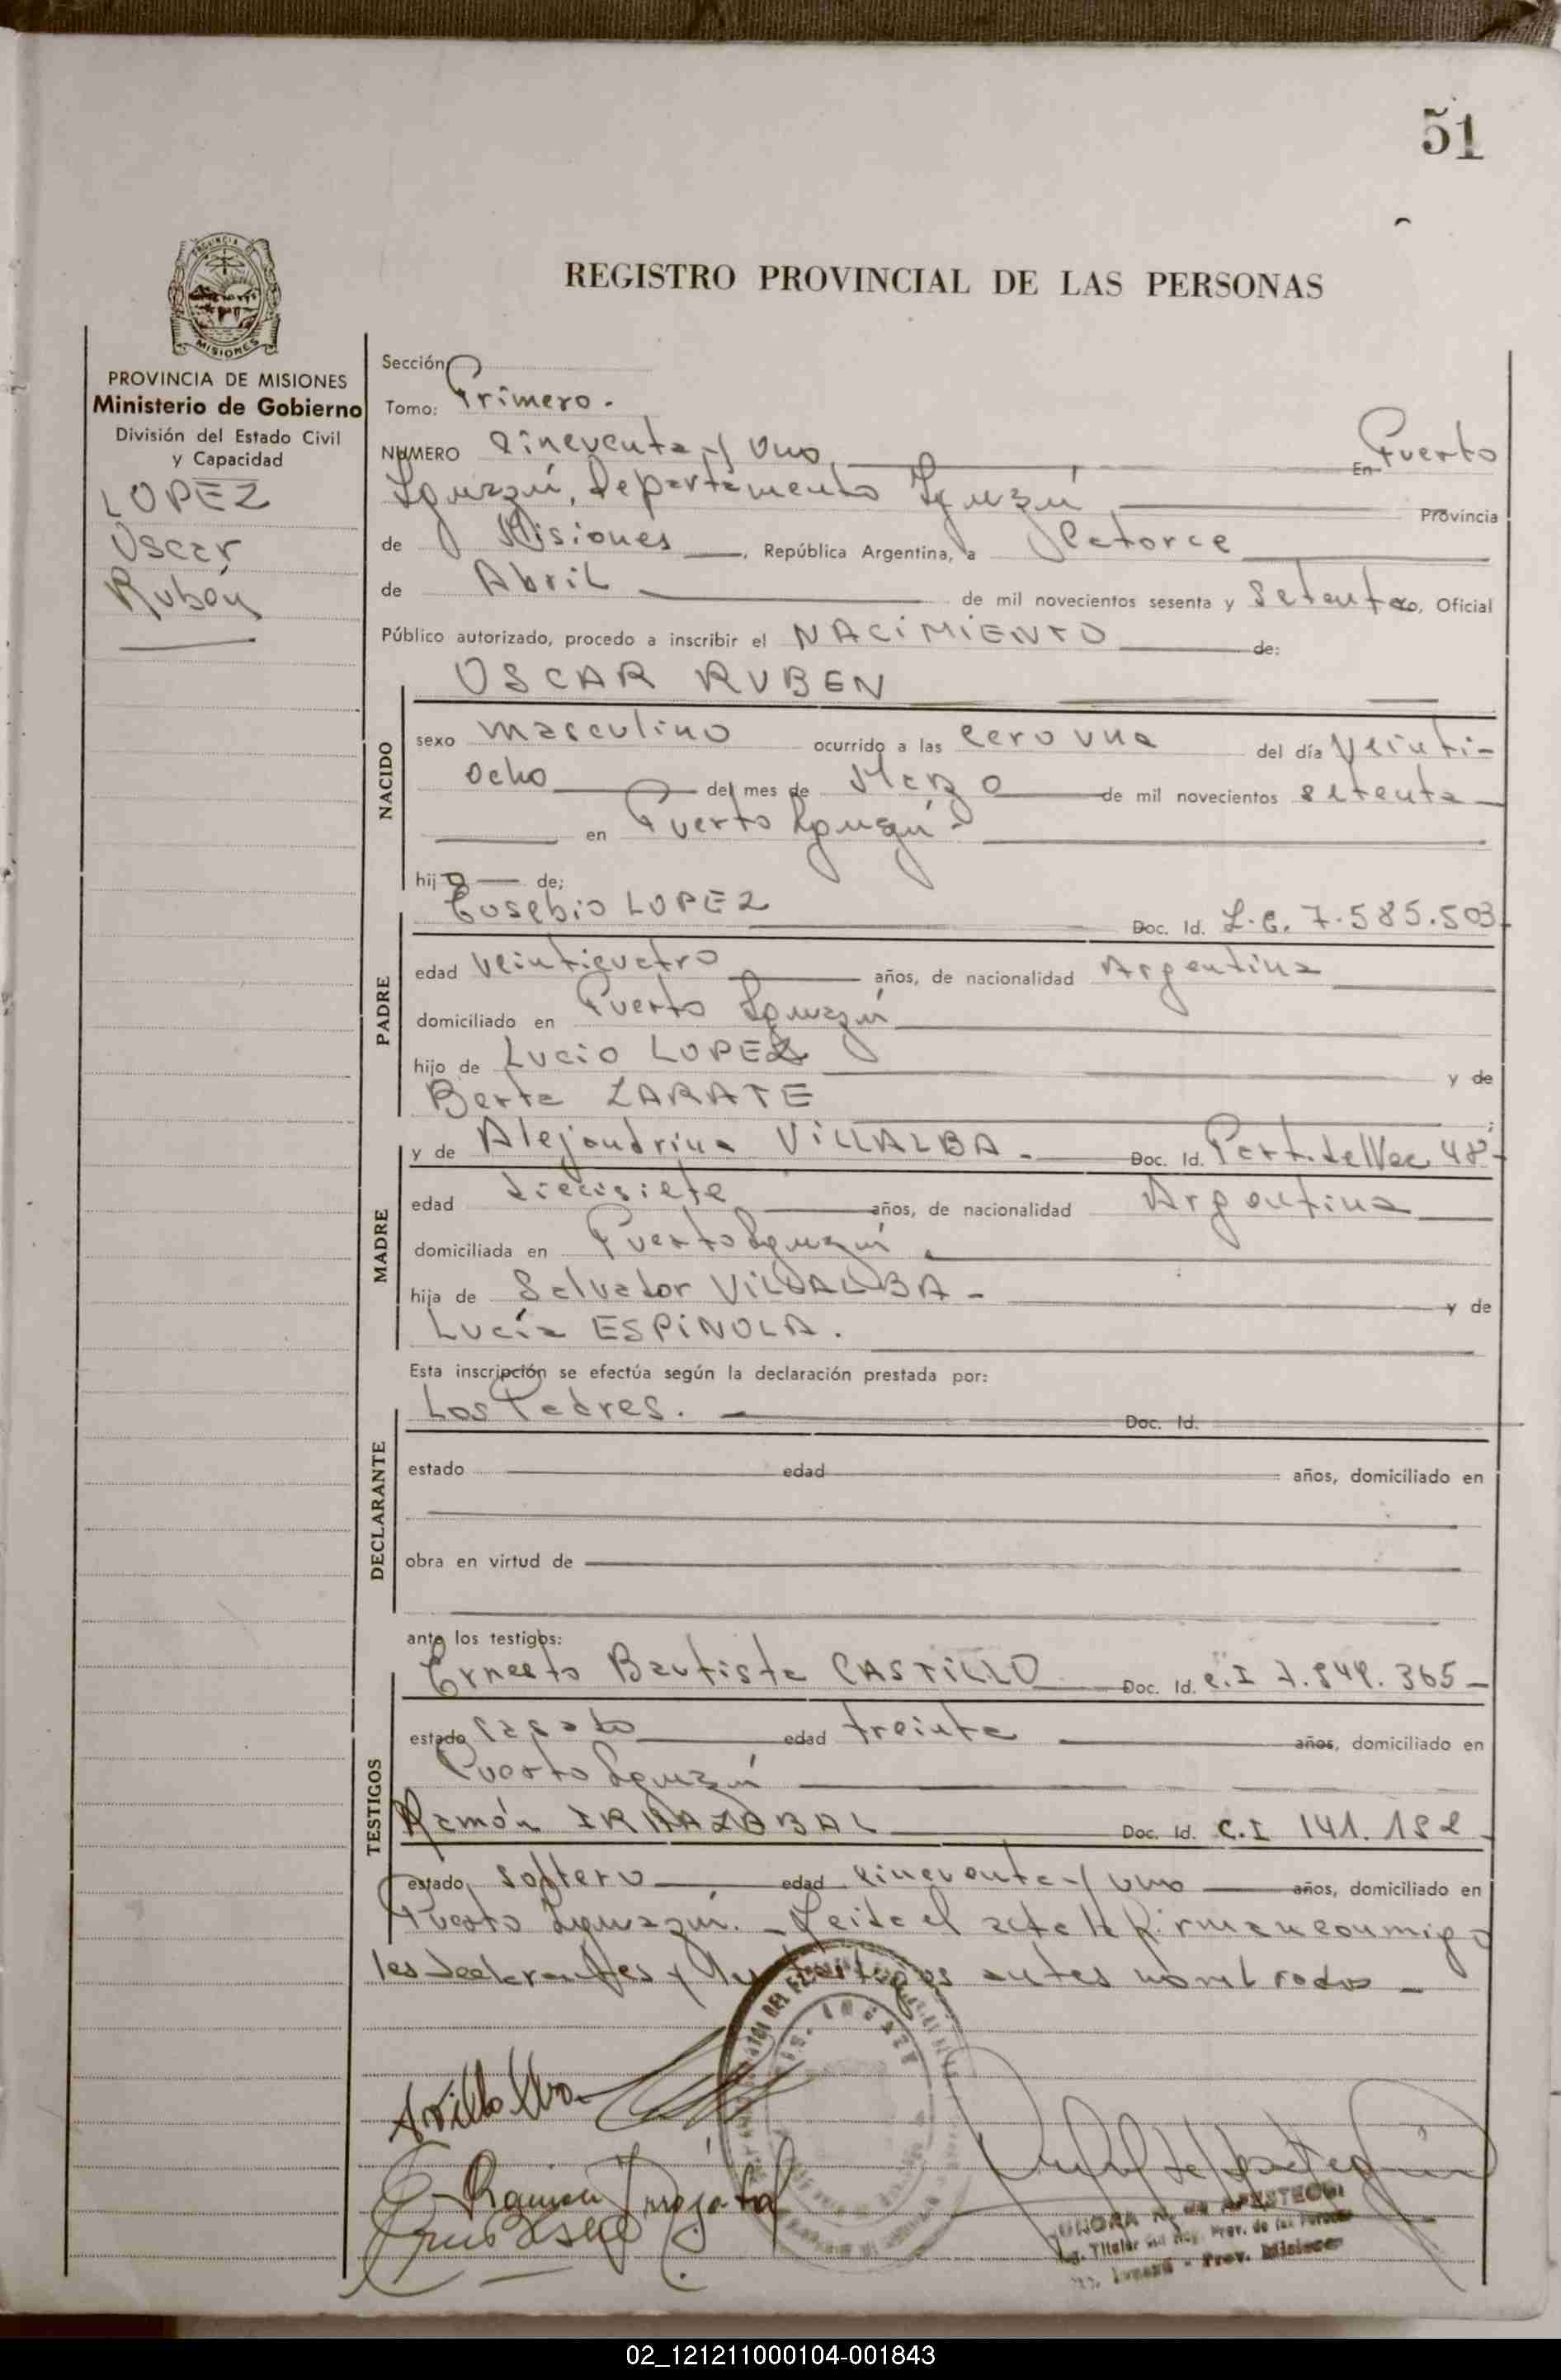 51
PROVINCIA DE
MISIONES
REGISTRO PROVINCIAL DE LAS PERSONAS
PROVINCIA DE MISIONES
Ministerio de Gobierno
División del Estado Civil
y Capacidad
LOPEZ
Oscar
Rubén
Sección
Tomo: Primero.
NUMERO Cincuenta y Uno, En Puerto
Iguazú, Departamento Iguazú Provincia
de Misiones, República Argentina, a Catorce
de Abril de mil novecientos sesenta y Setenta yo, Oficial
Público autorizado, procedo a inscribir el NACIMIENTO de:
OSCAR RUBEN
NACIDO
sexo masculino ocurrido a las cero una del día veinti-
ocho del mes de Marzo de mil novecientos setenta
en Puerto Iguazú-
hijo de:
PADRE
Eusebio LOPEZ Doc. Id. L.E. 7.585.503
edad veinticuatro años, de nacionalidad Argentina
domiciliado en Puerto Iguazú
hijo de Lucio LOPEZ y de
Berta ZARATE
MADRE
y de Alejandrina VILLALBA. Doc. Id. Part. de Nac 48
edad diecisiete años, de nacionalidad Argentina
domiciliada en Puerto Iguazú.
hija de Salvador VILLALBA - y de
Lucía ESPINOLA.
Esta inscripción se efectúa según la declaración prestada por:
DECLARANTE
Los Padres. Doc. Id.
estado edad años, domiciliado en
obra en virtud de
ante los testigos:
TESTIGOS
Ernesto Bautista CASTILLO Doc. Id. C.I 7.849.365
estado casado edad treinta años, domiciliado en
Puerto Iguazú
Ramón Doc. Id. C.I 141.182
estado soltero edad cincuenta y uno años, domiciliado en
Puerto Iguazú. - Leida el acta la firman conmigo
los declarantes y los testigos antes nombrados -
Ramón
DE APESTEGUI
Titular del Reg. Prov. de las Personas
Iguazú - Prov. Misiones
02_121211000104-001843